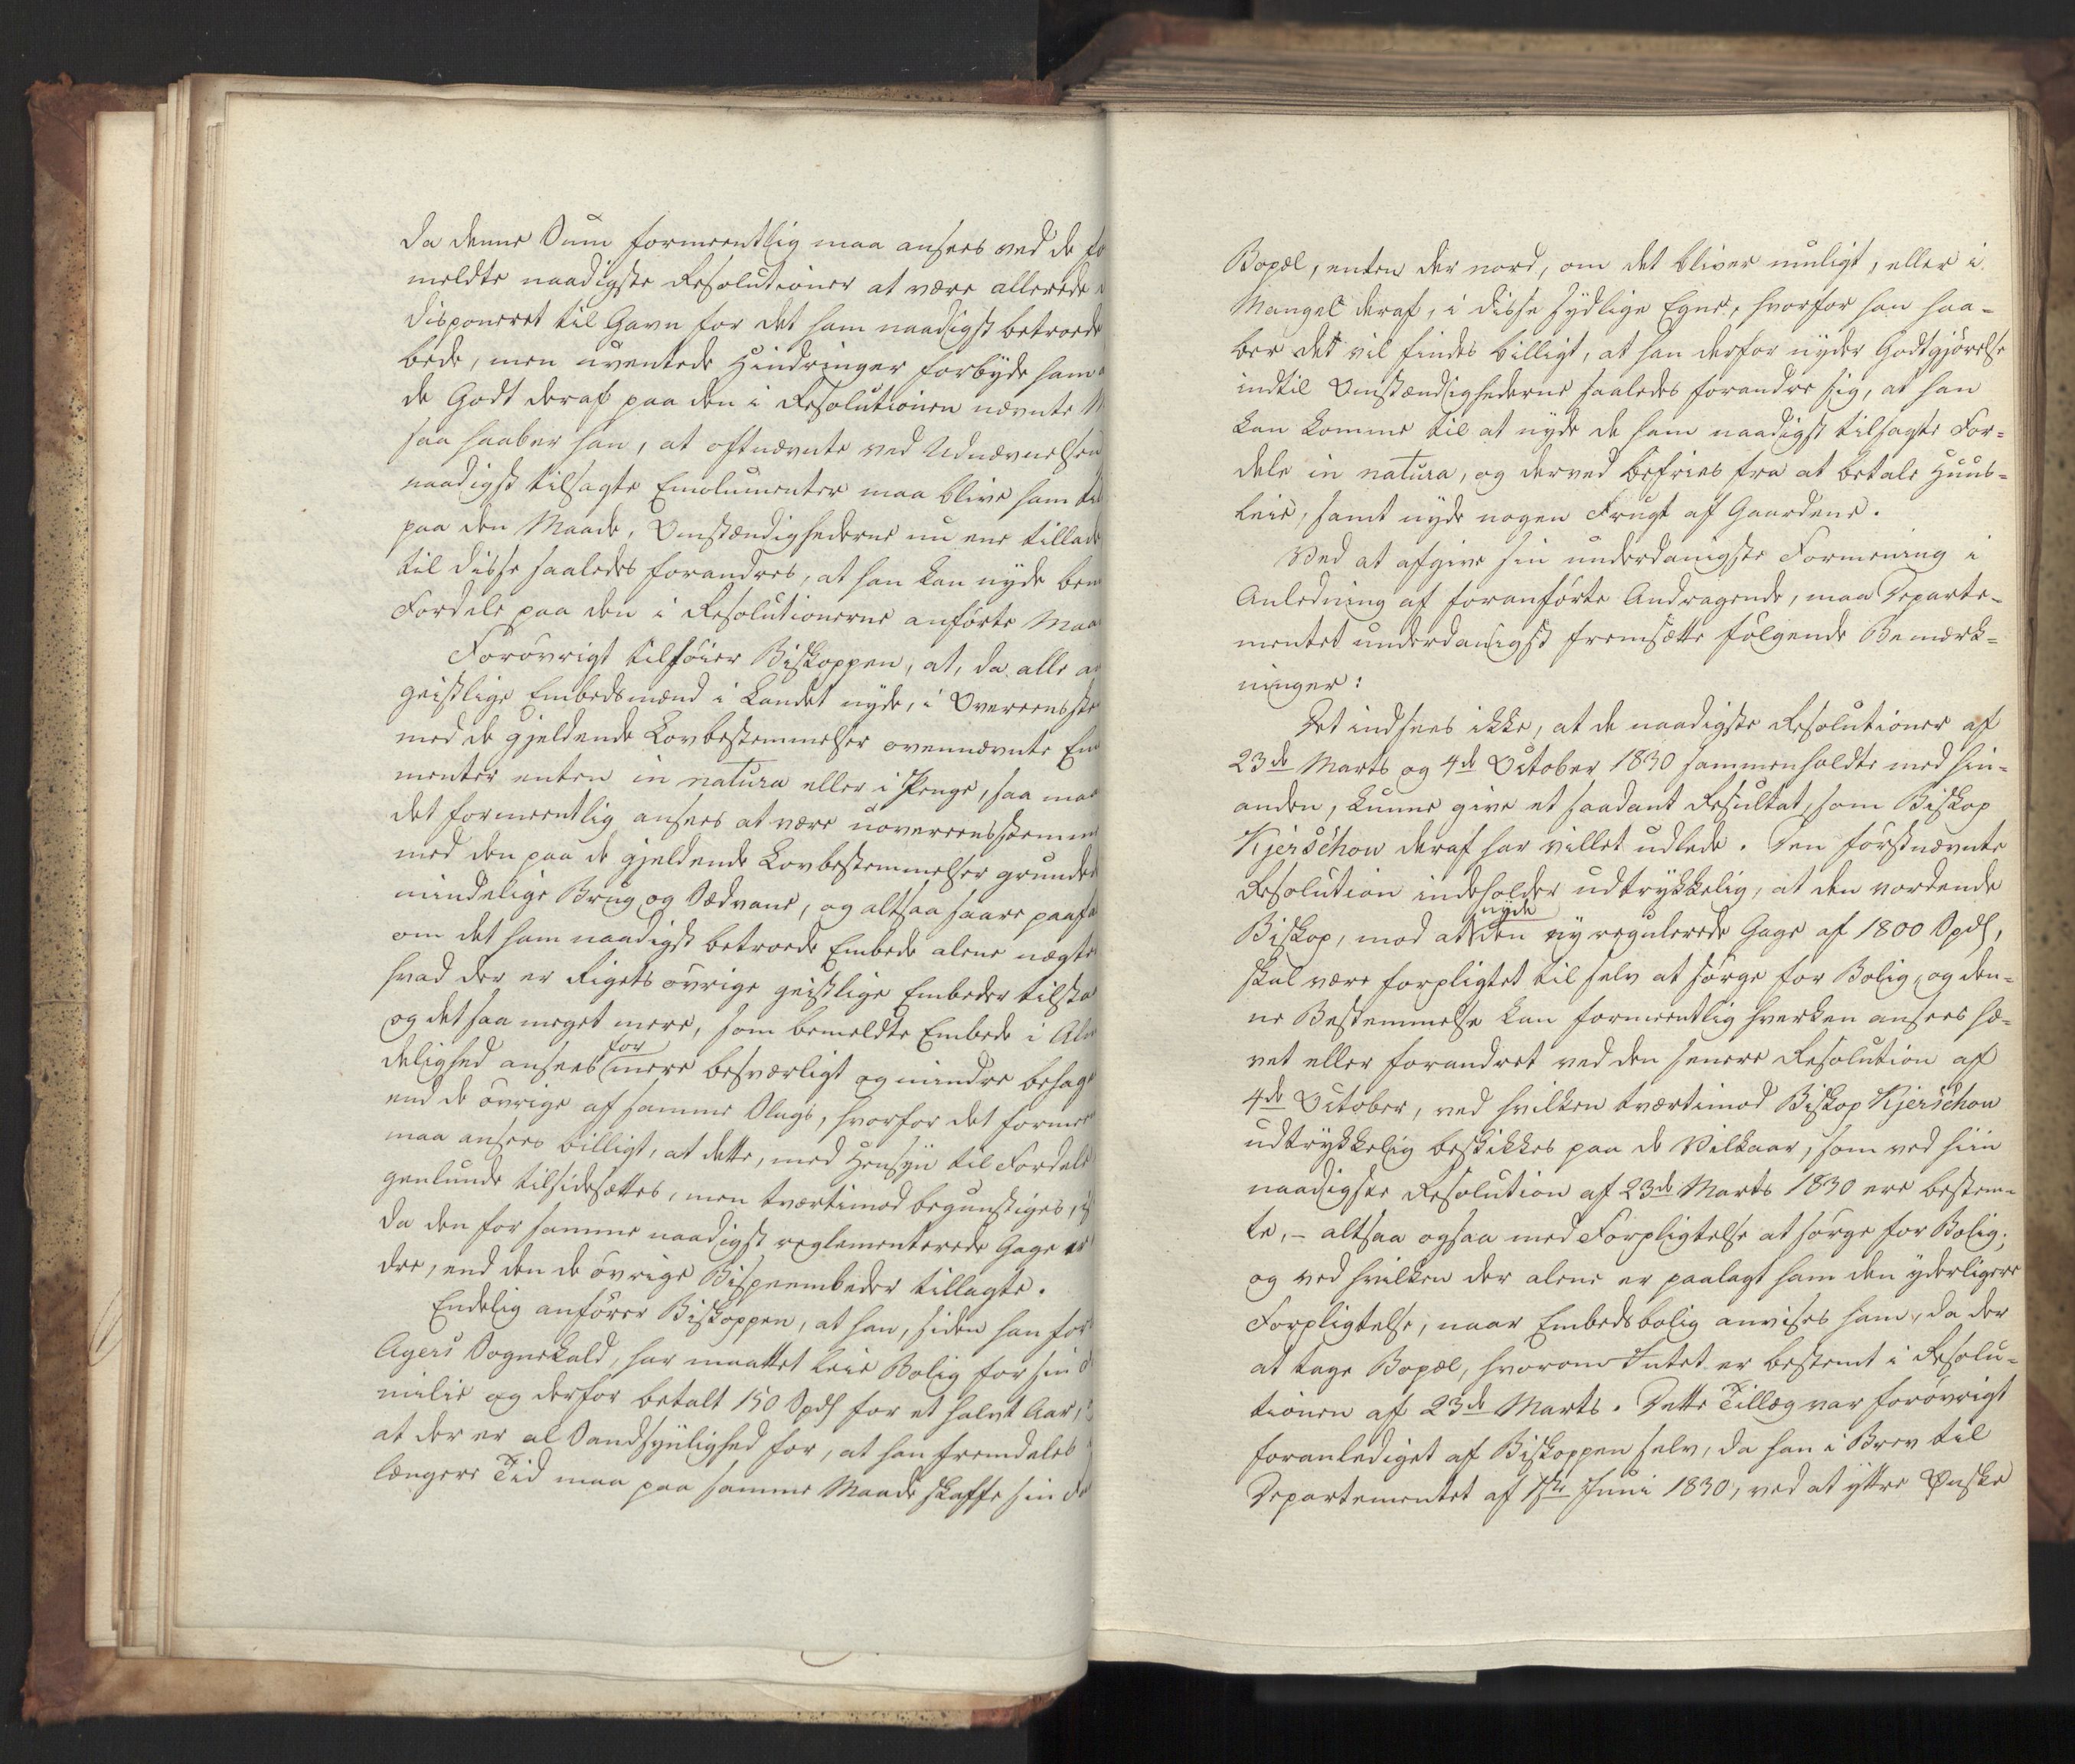 da denne Sum formeentlig maa ansees ved de fo
meldte naadigste Resolutioner at være allerede
disponeret til Gavn for det ham naadigst betroede
bede, men uventede Hindringer forbyde ham
de Godt deraf paa den i Resolutionen nævnte M
saa haaber han, at oftnævnte ved Udnævnelsen
naadigst tilsagte Emolumenter maa blive ham til
paa den Maade, Omstændighederne nu ene tillade
til disse saaledes forandres, at han kan nyde bem
Fordele paa den i Resolutionerne anførte Maa
Forøvrigt tilføier Biskoppen, at, da alle an
geistlige Embedsmænd i Landet nyde, i Overeensste
med de gjeldende Lovbestemmelser ovennævnte Em
menter enten in natura eller i Penge, saa maa
det formeentlig ansees at være uovereensstemm
med den paa de gjeldende Lovbestemmelser grunded
mindelige Brug og Sædvane, og altsaa saare paafa
om det ham naadigst betroede Embede alene nægte
hvad der er Rigets øvrige geistlige Embeder tilstaa
og det saa meget mere, som bemeldte Embede i Alm
delighed ansees for mere besværligt og mindre behage
end de øvrige af samme Slags, hvorfor det formee
maa ansees billigt, at dette, med Hensyn til Fordele
genlunde tilsidesættes, men tværtimod begunstiges, i
da den for samme naadigst reglementerede Gage er
dre, end den de øvrige Bispeembeder tillagte.
Endelig anfører Biskoppen, at han, siden han for
Agers Sognekald, har maattet leie Bolig for sin
milie og derfor betalt 150 Spd for et halvt Aar,
at der er al Sandsynlighed for, at han fremdeles
længere Tid maa paa samme Maade skaffe sin Fa
Bopæl, enten der nord, om det bliver muligt, eller i
Mangel deraf, i disse sydlige Egne, hvorfor han haa-
ber det vil findes billigt, at han derfor nyder Godtgjørelse
indtil Omstændighederne saaledes forandre sig, at han
kan komme til at nyde de ham naadigst tilsagte For-
dele in natura, og derved befries fra at betale Huus-
leie, samt nyde nogen Frugt af Gaardene.
Ved at afgive sin underdanigste Formening i
Anledning af foranførte Andragende, maa Departe-
mentet underdanigst fremsætte følgende Bemærk-
ninger:
Det indsees ikke, at de naadigste Resolutioner af
23de Marts og 4de October 1830 sammenholdte med hin-
anden, kunne give et saadant Resultat, som Biskop
Kjerschow deraf har villet udlede. Den førstnævnte
Resolution indeholder udtrykkelig, at den vordende
Biskop, mod at nyde den ny regulerede Gage af 1800 Spd,
skal være forpligtet til selv at sørge for Bolig, og den-
ne Bestemmelse kan formeentlig hverken ansees hæ-
vet eller forandret ved den senere Resolution af
4de October, ved hvilken tværtimod Biskop Kjerschow
udtrykkelig beskikkes paa de Vilkaar, som ved hiin
naadigste Resolution af 23de Marts 1830 ere bestem-
te, - altsaa ogsaa med Forpligtelse at sørge for Bolig;
og ved hvilken der alene er paalagt ham den yderligere
Forpligtelse, naar Embedsbolig anvises ham, da der
at tage Bopæl, hvorom Intet er bestemt i Resolu-
tionen af 23de Marts. Dette Tillæg var forøvrigt
foranlediget af Biskoppen selv, da han i Brev til
Departementet af 1ste Juni 1830, ved at yttre Ønske